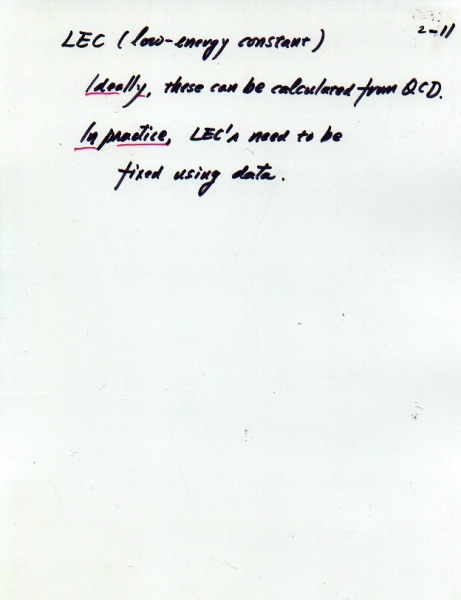 2-11
LEC (low-energy constant)
Ideally, these can be calculated from QCD.
In practice, LEC's need to be
fixed using data.